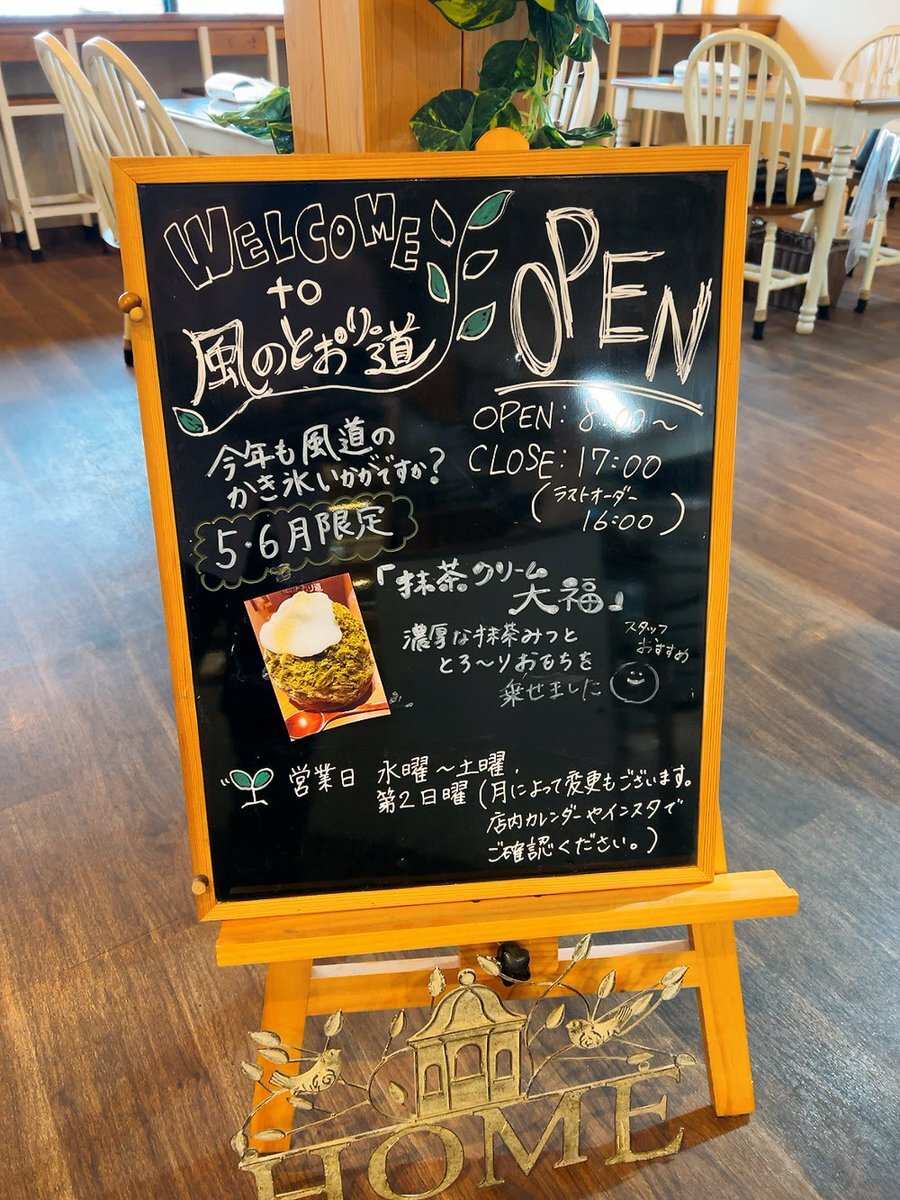 WELCOME
to
風のとおり道
OPEN
OPEN: 8:00～
CLOSE: 17:00
(ラストオーダー
16:00)
今年も風道の
かき氷いかがですか?
5・6月限定
「抹茶クリーム
大福」
濃厚な抹茶みつと
とろ～りおもちを
乗せました
スタッフ
おすすめ
営業日 水曜～土曜.
第2日曜(月によって変更もございます。
店内カレンダーやインスタで
ご確認ください。)
HOME